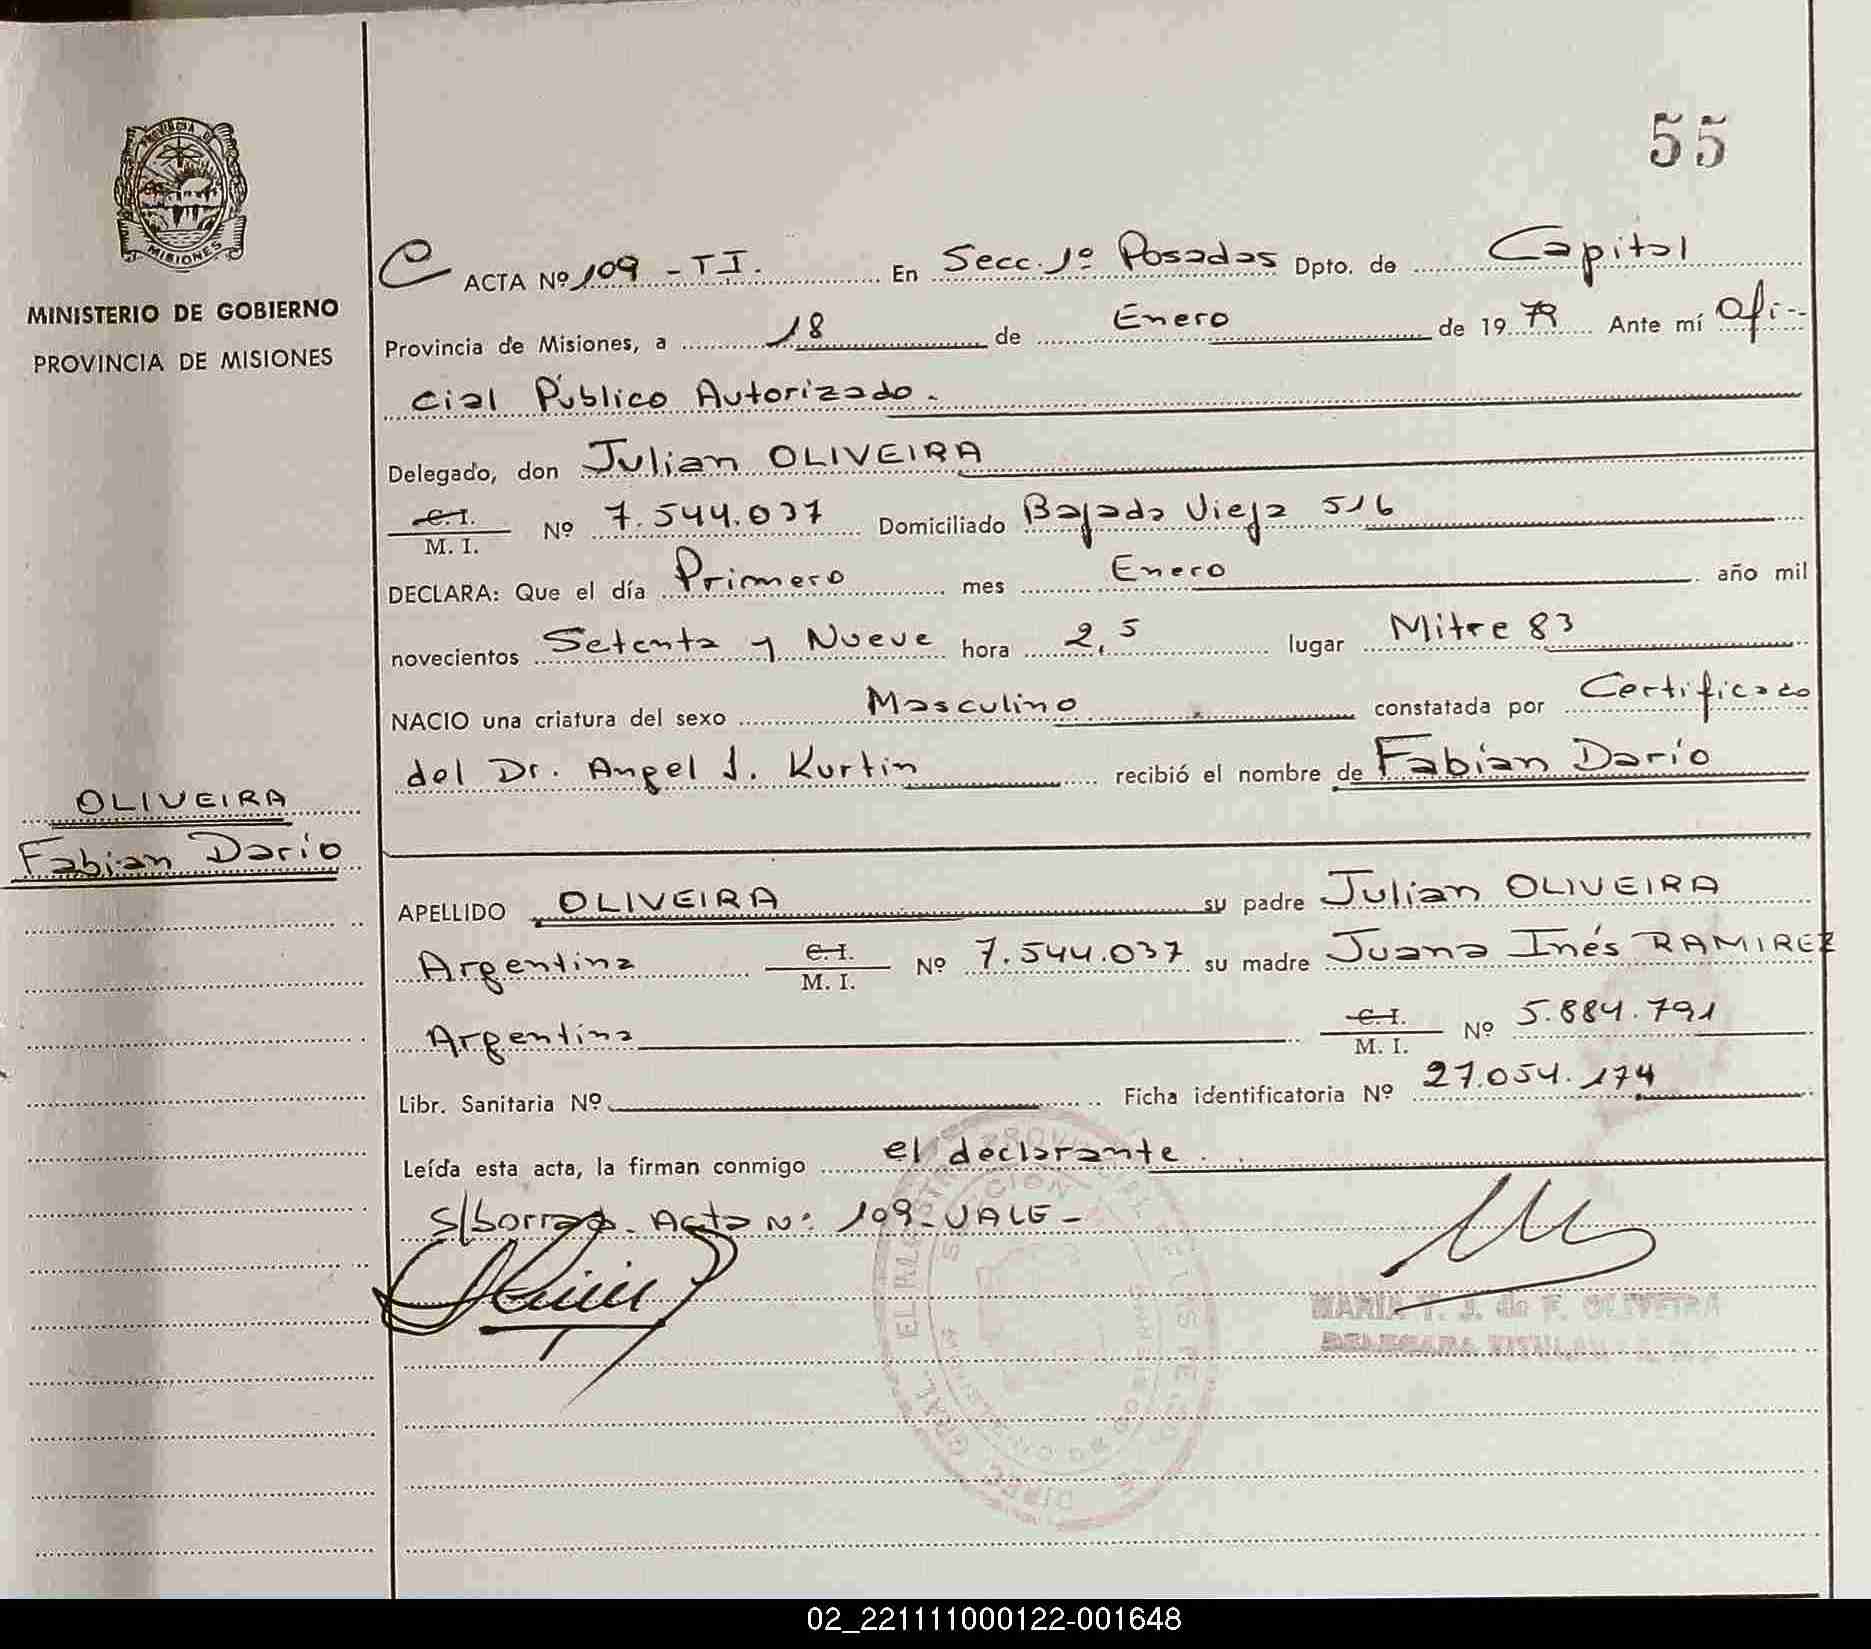 55
PROVINCIA DE
MISIONES
MINISTERIO DE GOBIERNO
PROVINCIA DE MISIONES
OLIVEIRA
Fabian Dario
ACTA Nº 109 - TI. En Secc. 1º Posadas Dpto. de Capital
Provincia de Misiones, a 18 de Enero de 19 79 Ante mí Ofi-
cial Público Autorizado.
Delegado, don Julian OLIVEIRA
C. I.
M. I. Nº 7.544.037 Domiciliado Bajada Vieja 516
DECLARA: Que el día Primero mes Enero año mil
novecientos Setenta y Nueve hora 2,5 lugar Mitre 83
NACIO una criatura del sexo Masculino constatada por Certificado
del Dr. Angel J. Kurtin recibió el nombre de Fabian Darío
APELLIDO OLIVEIRA su padre Julian OLIVEIRA
Argentina C. I. M. I. Nº 7.544.037 su madre Juana Inés RAMIREZ
Argentina C. I. M. I. Nº 5.884.791
Libr. Sanitaria Nº Ficha identificatoria Nº 27.054.174
Leída esta acta, la firman conmigo el declarante.
s/borrado. Acta Nº 109 - VALE -
MARIA T. J. de F. OLIVEIRA
DELEGADA TITULAR
02_221111000122-001648